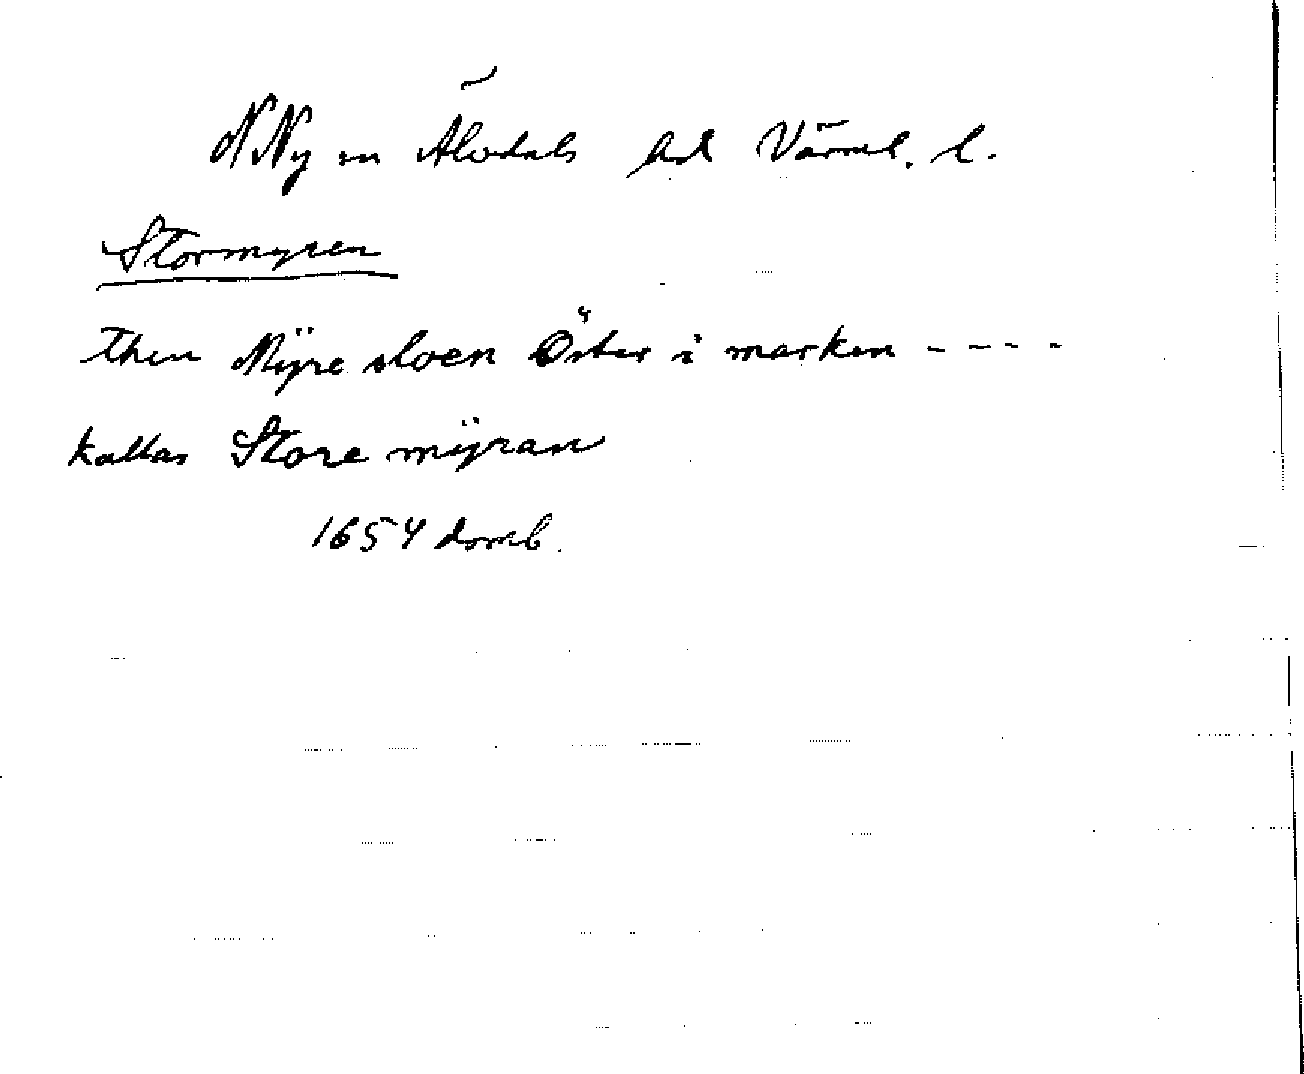 N Ny sn Älvdals hd Värml. l.
Stormyren
then Mÿre sloen Öster i marken - - - -
kallas Store mÿran
1654 domb.